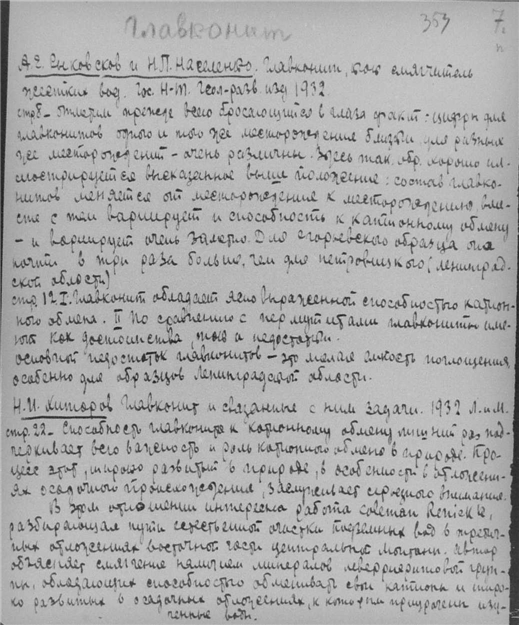 Главконит
353
7.
А.Е. Енковсков и Н.П. Населенко. Главконит, как смягчитель
жестких вод. Гос. Н-Т. Геол-разв изд 1932.
стр8- Отметим прежде всего бросающийся в глаза факт: цифры для
главконитов одного и того же месторождение близки для разных
же месторождений - очень различны. Здесь так. обр. хорошо ил-
люстрируется высказанное выше положение: состав главко-
нитов меняется от месторождения к месторождению вме-
сте с тем варьирует и способность к катионному обмену
- и варьирует очень заметно. Для егорьевского образца она
почти в три раза больше, чем для петровицкого (ленинград-
ской области)
стр. 12 I. Главконит обладает ясно выраженной способностью катион-
ного обмена. II По сравнению с пермутитами главкониты име-
ют как достоинства, так и недостатки.
основной недостаток главконитов - это малая емкость поглощения
особенно для образцов Ленинградской области.
Н.И. Хитаров Главконит и связанные с ним задачи. 1932 Л. и М.
стр. 22- Способность главконита к катионному обмену лишний раз под-
черкивает всю важность и роль катионного обмена в природе. Про-
цесс этот, широко развитый в природе, в особенности в отложени-
ях осадочного происхождения, заслуживает серьезного внимания.
В этом отношении интересна работа Coleman Renick'а,
разбирающая пути естественной очистки подземных вод в третич-
ных отложениях восточной части центральной Монтаны. Автор
объясняет смягчение наличием минералов леверрьеритовой груп-
пы, обладающих способностью обменивать свои катионы и широ-
ко развитых в осадочных отложениях, к которым приурочены изу-
ченные воды.